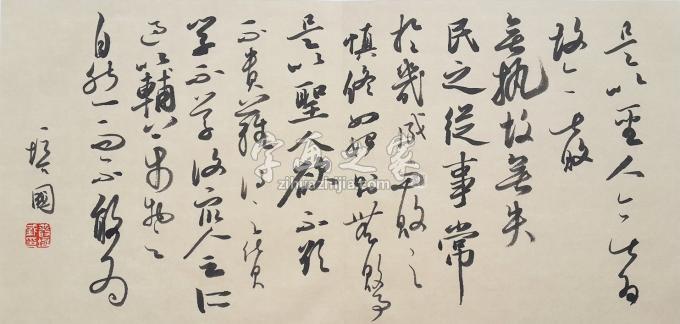 是以聖人无为
故无敗
無執故無失
民之從事常
於幾成而敗之
慎終如始則無敗事
是以聖人欲不欲
不貴難得之貨
學不學復眾人之所
過以輔万物之
自然而不敢為
培國
字画之家
zihuazhijia.com